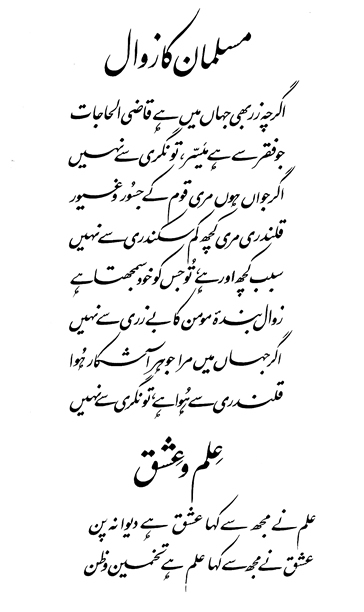 مسلمان کا زوال
اگرچہ زر بھی جہاں میں ہے قاضی الحاجات
جو فقر سے ہے میَسّر، تونگری سے نہیں
اگر جواں ہوں مری قوم کے جسُور و غیور
قلندری مری کچھ کم سکندری سے نہیں
سبب کچھ اور ہے، تُو جس کو خود سمجھتا ہے
زوال بندۂ مومن کا بے زری سے نہیں
اگر جہاں میں مرا جوہر آشکار ہُوا
قلندری سے ہُوا ہے، تونگری سے نہیں
عِلم و عِشق
علم نے مجھ سے کہا عشق ہے دیوانہ پن
عشق نے مجھ سے کہا علم ہے تخمین و ظن